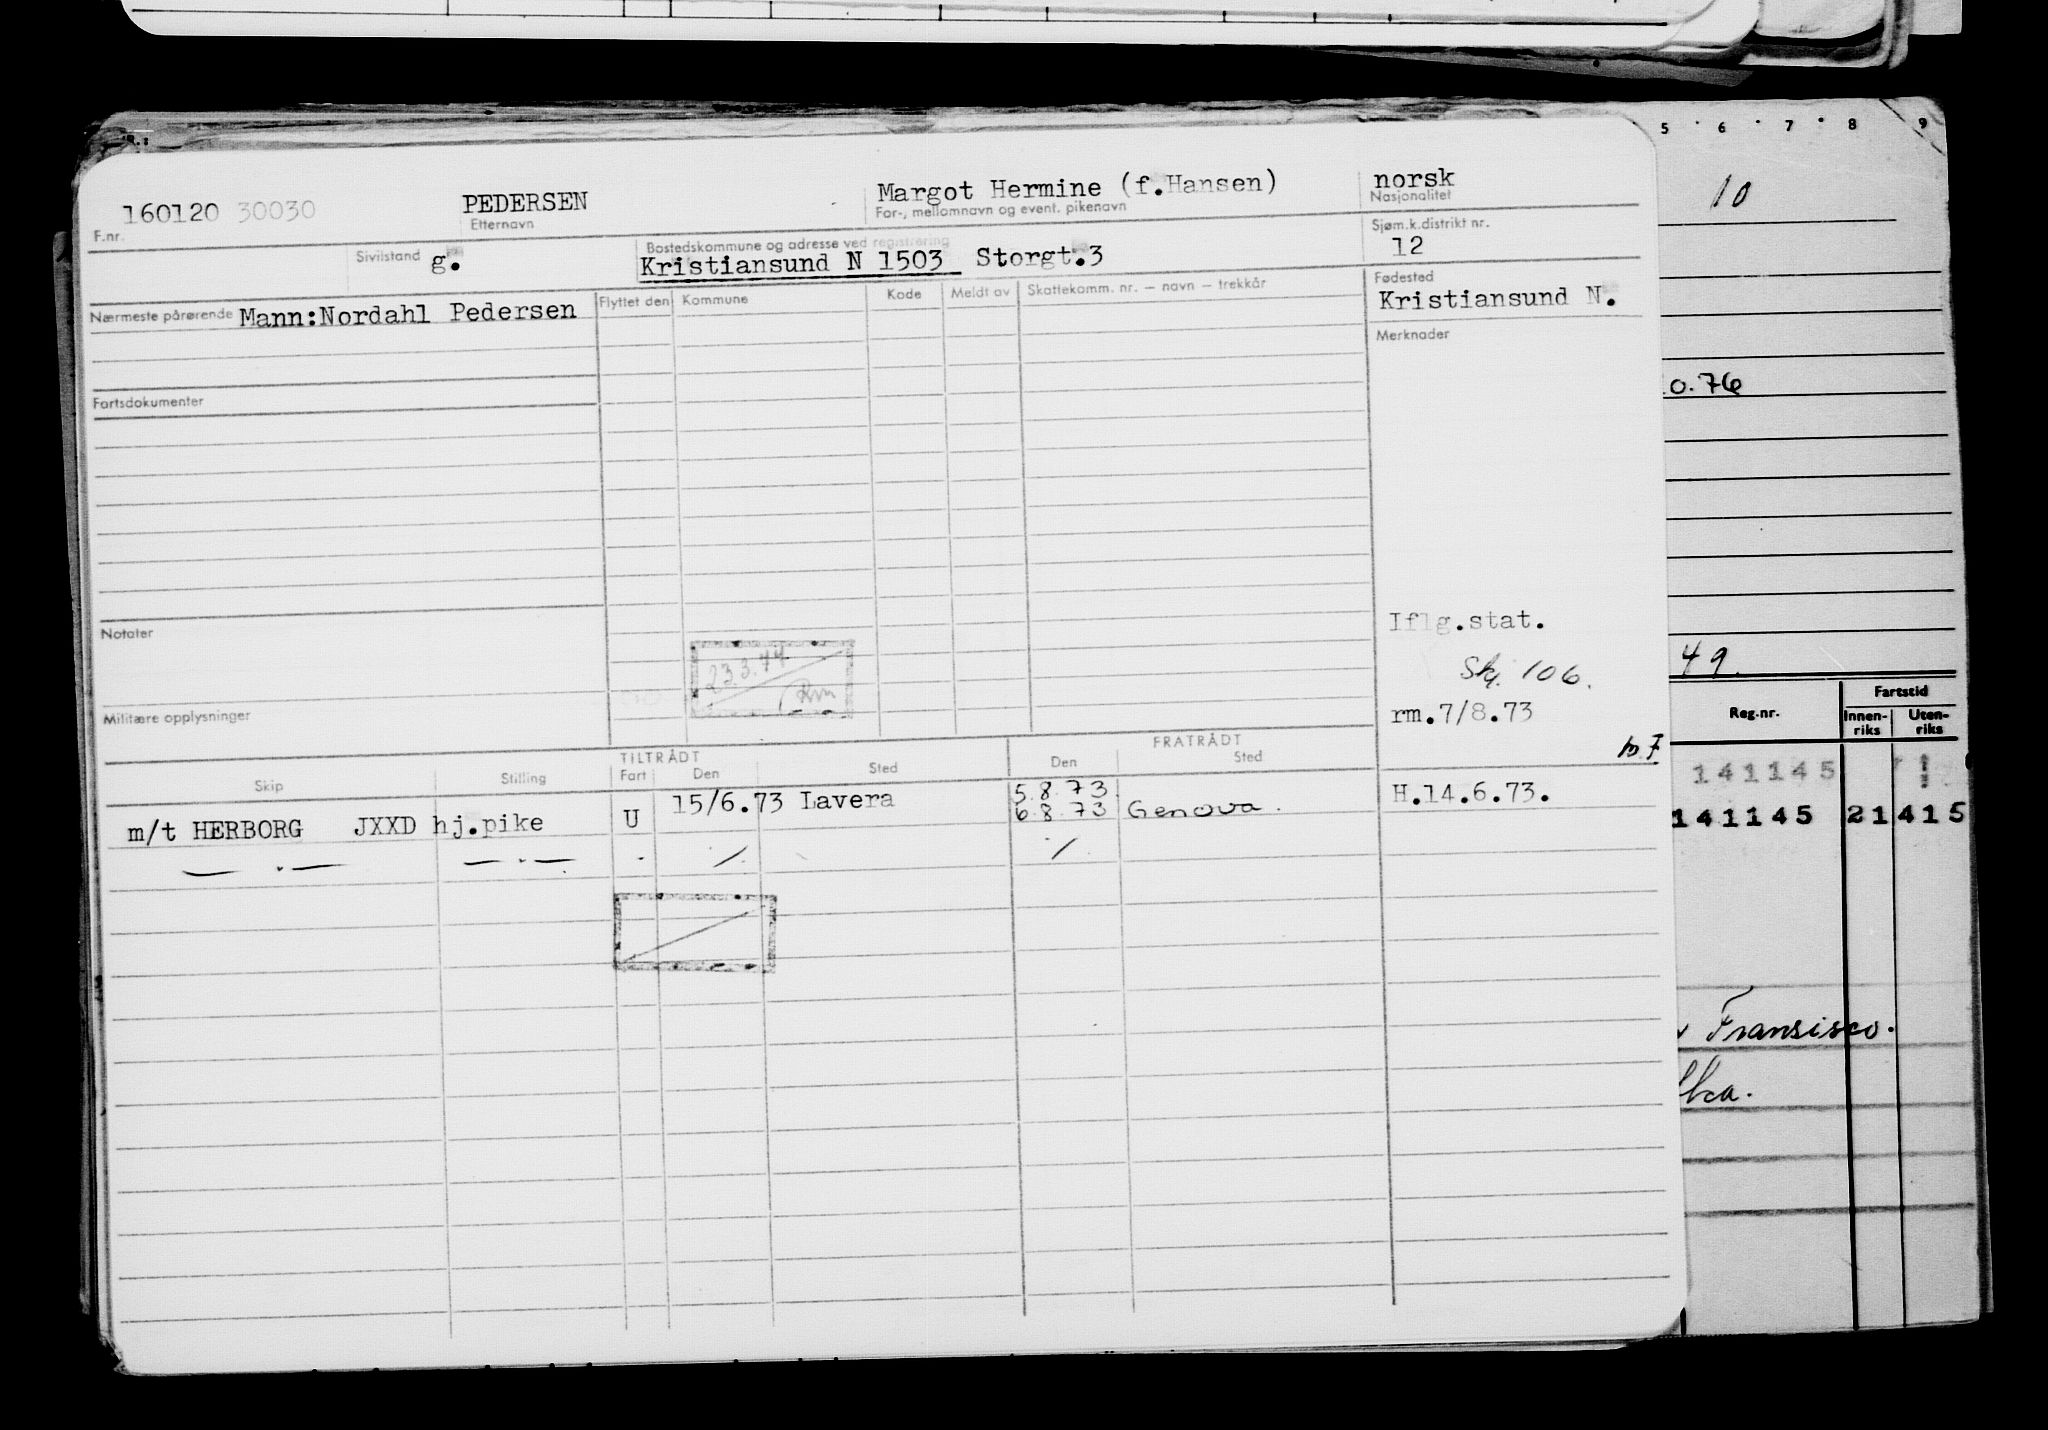 160120 30030 PEDERSEN Margot Hermine (f.Hansen) norsk
F.nr. Etternavn For-, mellomnavn og event. pikenavn Nasjonalitet
Sivilstand g. Bostedskommune og adresse ved registrering Sjøm.k.distrikt nr.
Kristiansund N 1503 Storgt.3 12
Nærmeste pårørende Mann:Nordahl Pedersen Flyttet den Kommune Kode Meldt av Skattekomm. nr. — navn — trekkår Fødested
Kristiansund N.
Merknader
Fartsdokumenter
Notater
Iflg.stat.
23.3.74
106.
Militære opplysninger
rm.7/8.73
TILTRÅDT FRATRÅDT
Skip Stilling Fart Den Sted Den Sted
m/t HERBORG JXXD hj.pike U 15/6.73 Lavera 5.8.73. H.14.6.73.
6.8.73 Genova.
— . — — . — . / /
5 6 7 8 9
10
o.76
49.
Reg.nr. Fartstid
Innen- Uten-
riks riks
141145
141145 21 415
Fransisco.